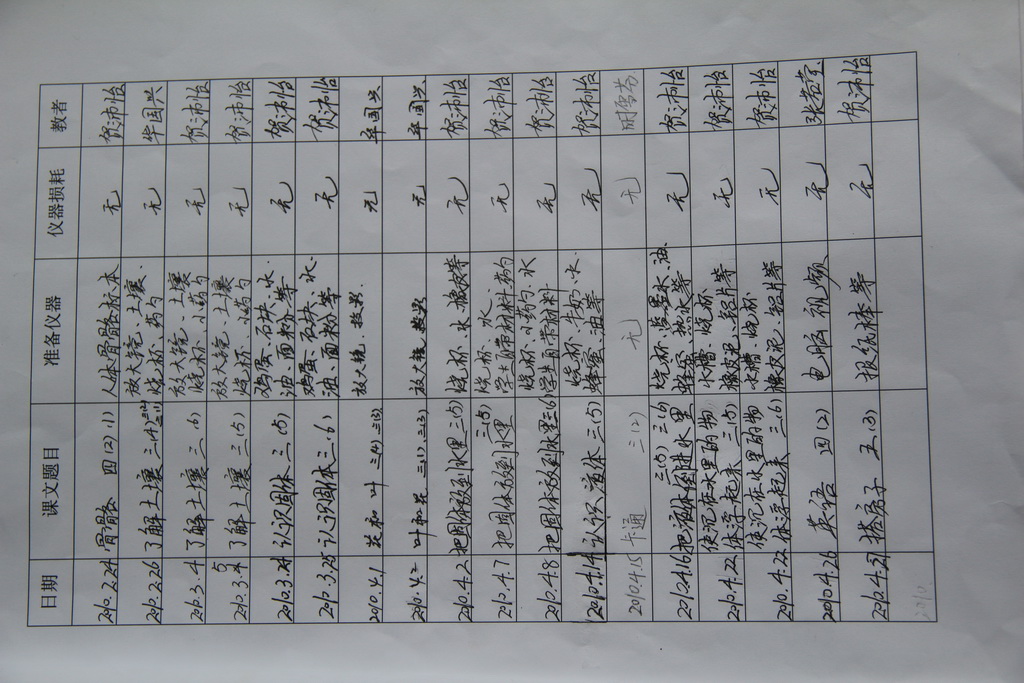 日期 课文题目 准备仪器 仪器损耗 教者
2010.2.24 骨骼 四(2)(1) 人体骨骼标本 无 贺沛怡
2010.2.26 了解土壤 三(4) 放大镜、土壤、
烧杯、药勺 无 华国兴
2010.3.4 了解土壤 三(6) 放大镜、土壤
烧杯、小药勺 无 贺沛怡
2010.3.5 了解土壤 三(5) 放大镜、土壤
烧杯、小药勺 无 贺沛怡
2010.3.24 认识固体 三(5) 鸡蛋、石块、水、
油、面粉等 无 贺沛怡
2010.3.25 认识固体 三(6) 鸡蛋、石块、水、
油、面粉等 无 贺沛怡
2010.4.1 花和叶 三(4) 三(3) 放大镜、投影 无 华国兴
2010.4.2 叶和花 三(1)、三(2) 放大镜 投影 无 华国兴
2010.4.2 把固体放到水里 三(5) 烧杯、水、橡皮等 无 贺沛怡
2010.4.7 把固体放到水里 三(5) 烧杯、水、
学生自带材料 药勺 无 贺沛怡
2010.4.8 把固体放到水里 三(6) 烧杯、小药勺、水
学生自带材料 无 贺沛怡
2010.4.14 认识液体 三(5) 烧杯、牛奶、水、
蜂蜜、油等 无 贺沛怡
2010.4.15 卡通 三(2) 无 无
2010.4.16 把液体倒进水里 三(5) 三(6) 烧杯、蓝墨水、油、
蜂蜜、热水等 无 贺沛怡
2010.4.22 使沉在水里的物
体浮起来 三(5) 水槽、烧杯
橡皮泥、铝片等 无 贺沛怡
2010.4.22 使沉在水里的物
体浮起来 三(6) 水槽 烧杯
橡皮泥、铝片等 无 贺沛怡
2010.4.26 英语 四(2) 电脑 视频 无
2010.4.27 搭房子 五(2) 报纸棒等 无 贺沛怡
2010.